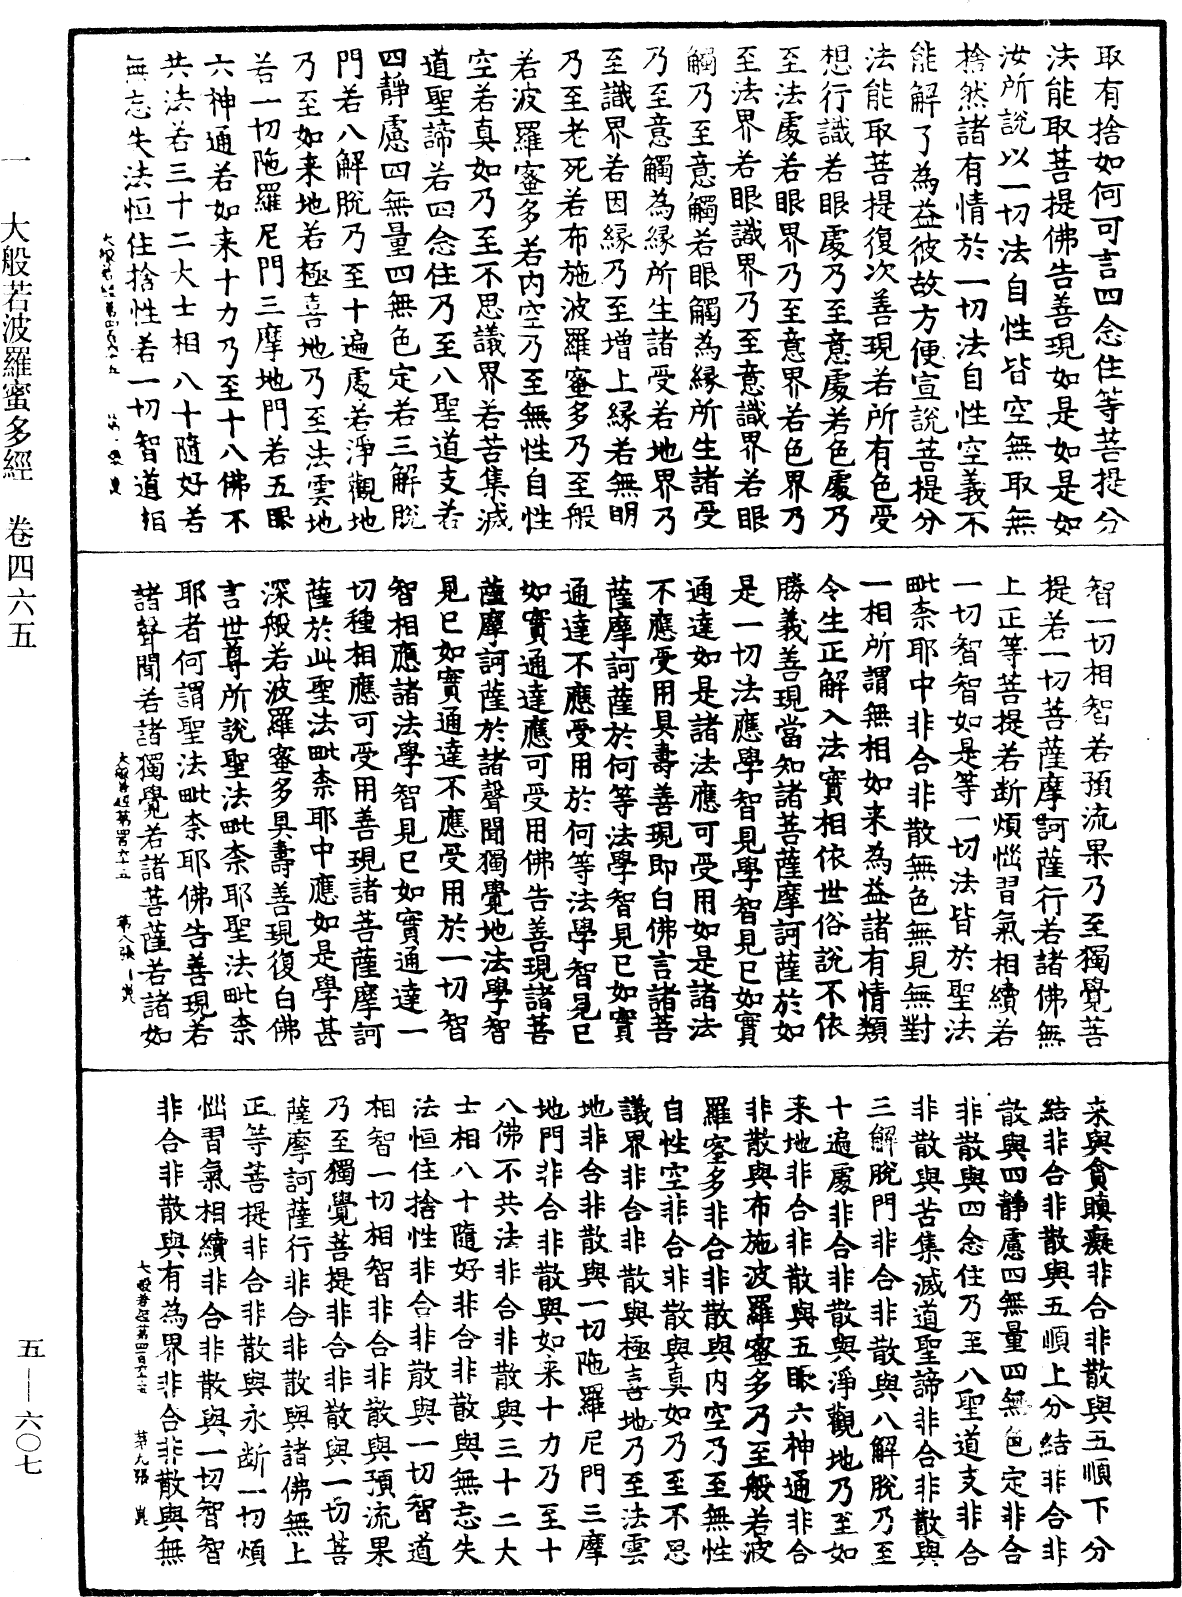 取有捨如何可言四念住等菩提分
法能取菩提佛告善現如是如是如
汝所說以一切法自性皆空無取無
捨然諸有情於一切法自性空義不
能解了為益彼故方便宣說菩提分
法能取菩提復次善現若所有色受
想行識若眼處乃至意處若色處乃
至法處若眼界乃至意界若色界乃
至法界若眼識界乃至意識界若眼
觸乃至意觸若眼觸為緣所生諸受
乃至意觸為緣所生諸受若地界乃
至識界若因緣乃至增上緣若無明
乃至老死若布施波羅蜜多乃至般
若波羅蜜多若內空乃至無性自性
空若真如乃至不思議界若苦集滅
道聖諦若四念住乃至八聖道支若
四靜慮四無量四無色定若三解脫
門若八解脫乃至十遍處若淨觀地
乃至如來地若極喜地乃至法雲地
若一切陁羅尼門三摩地門若五眼
六神通若如來十力乃至十八佛不
共法若三十二大士相八十隨好若
無忘失法恒住捨性若一切智道相
智一切相智若預流果乃至獨覺菩
提若一切菩薩摩訶薩行若諸佛無
上正等菩提若断煩惱習氣相續若
一切智智如是等一切法皆於聖法
毗奈耶中非合非散無色無見無對
一相所謂無相如來為益諸有情類
令生正解入法實相依世俗說不依
勝義善現當知諸菩薩摩訶薩於如
是一切法應學智見學智見已如實
通達如是諸法應可受用如是諸法
不應受用具壽善現即白佛言諸菩
薩摩訶薩於何等法學智見已如實
通達不應受用於何等法學智見已
如實通達應可受用佛告善現諸菩
薩摩訶薩於諸聲聞獨覺地法學智
見已如實通達不應受用於一切智
智相應諸法學智見已如實通達一
切種相應可受用善現諸菩薩摩訶
薩於此聖法毗奈耶中應如是學甚
深般若波羅蜜多具壽善現復白佛
言世尊所說聖法毗奈耶聖法毗奈
耶者何謂聖法毗奈耶佛告善現若
諸聲聞若諸獨覺若諸菩薩若諸如
來與貪瞋癡非合非散與五順下分
結非合非散與五順上分結非合非
散與四靜慮四無量四無色定非合
非散與四念住乃至八聖道支非合
非散與苦集滅道聖諦非合非散與
三解脫門非合非散與八解脫乃至
十遍處非合非散與淨觀地乃至如
來地非合非散與五眼六神通非合
非散與布施波羅蜜多乃至般若波
羅蜜多非合非散與內空乃至無性
自性空非合非散與真如乃至不思
議界非合非散與極喜地乃至法雲
地非合非散與一切陁羅尼門三摩
地門非合非散與如來十力乃至十
八佛不共法非合非散與三十二大
士相八十隨好非合非散與無忘失
法恒住捨性非合非散與一切智道
相智一切相智非合非散與預流果
乃至獨覺菩提非合非散與一切菩
薩摩訶薩行非合非散與諸佛無上
正等菩提非合非散與永断一切煩
惱習氣相續非合非散與一切智智
非合非散與有為界非合非散與無
大般若經第四百六十五 第八張
大般若經第四百六十五 第九張
一 大般若波羅蜜多經 卷四六五
五—六〇七